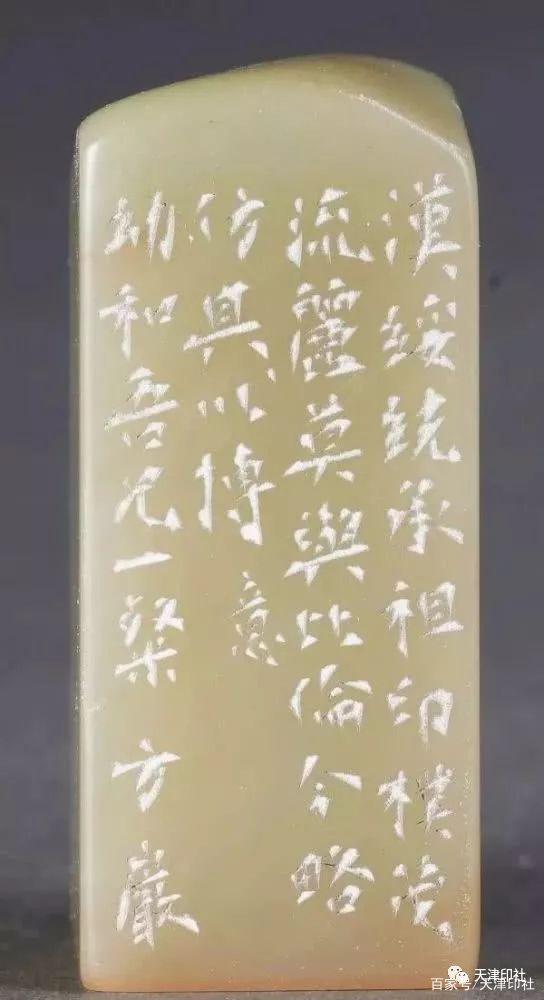 漢綏統承祖印樸茂
流麗莫與比倫今略
仿其以博意
幼和吾兄一粲 方巖
天津印社
百家号/天津印社